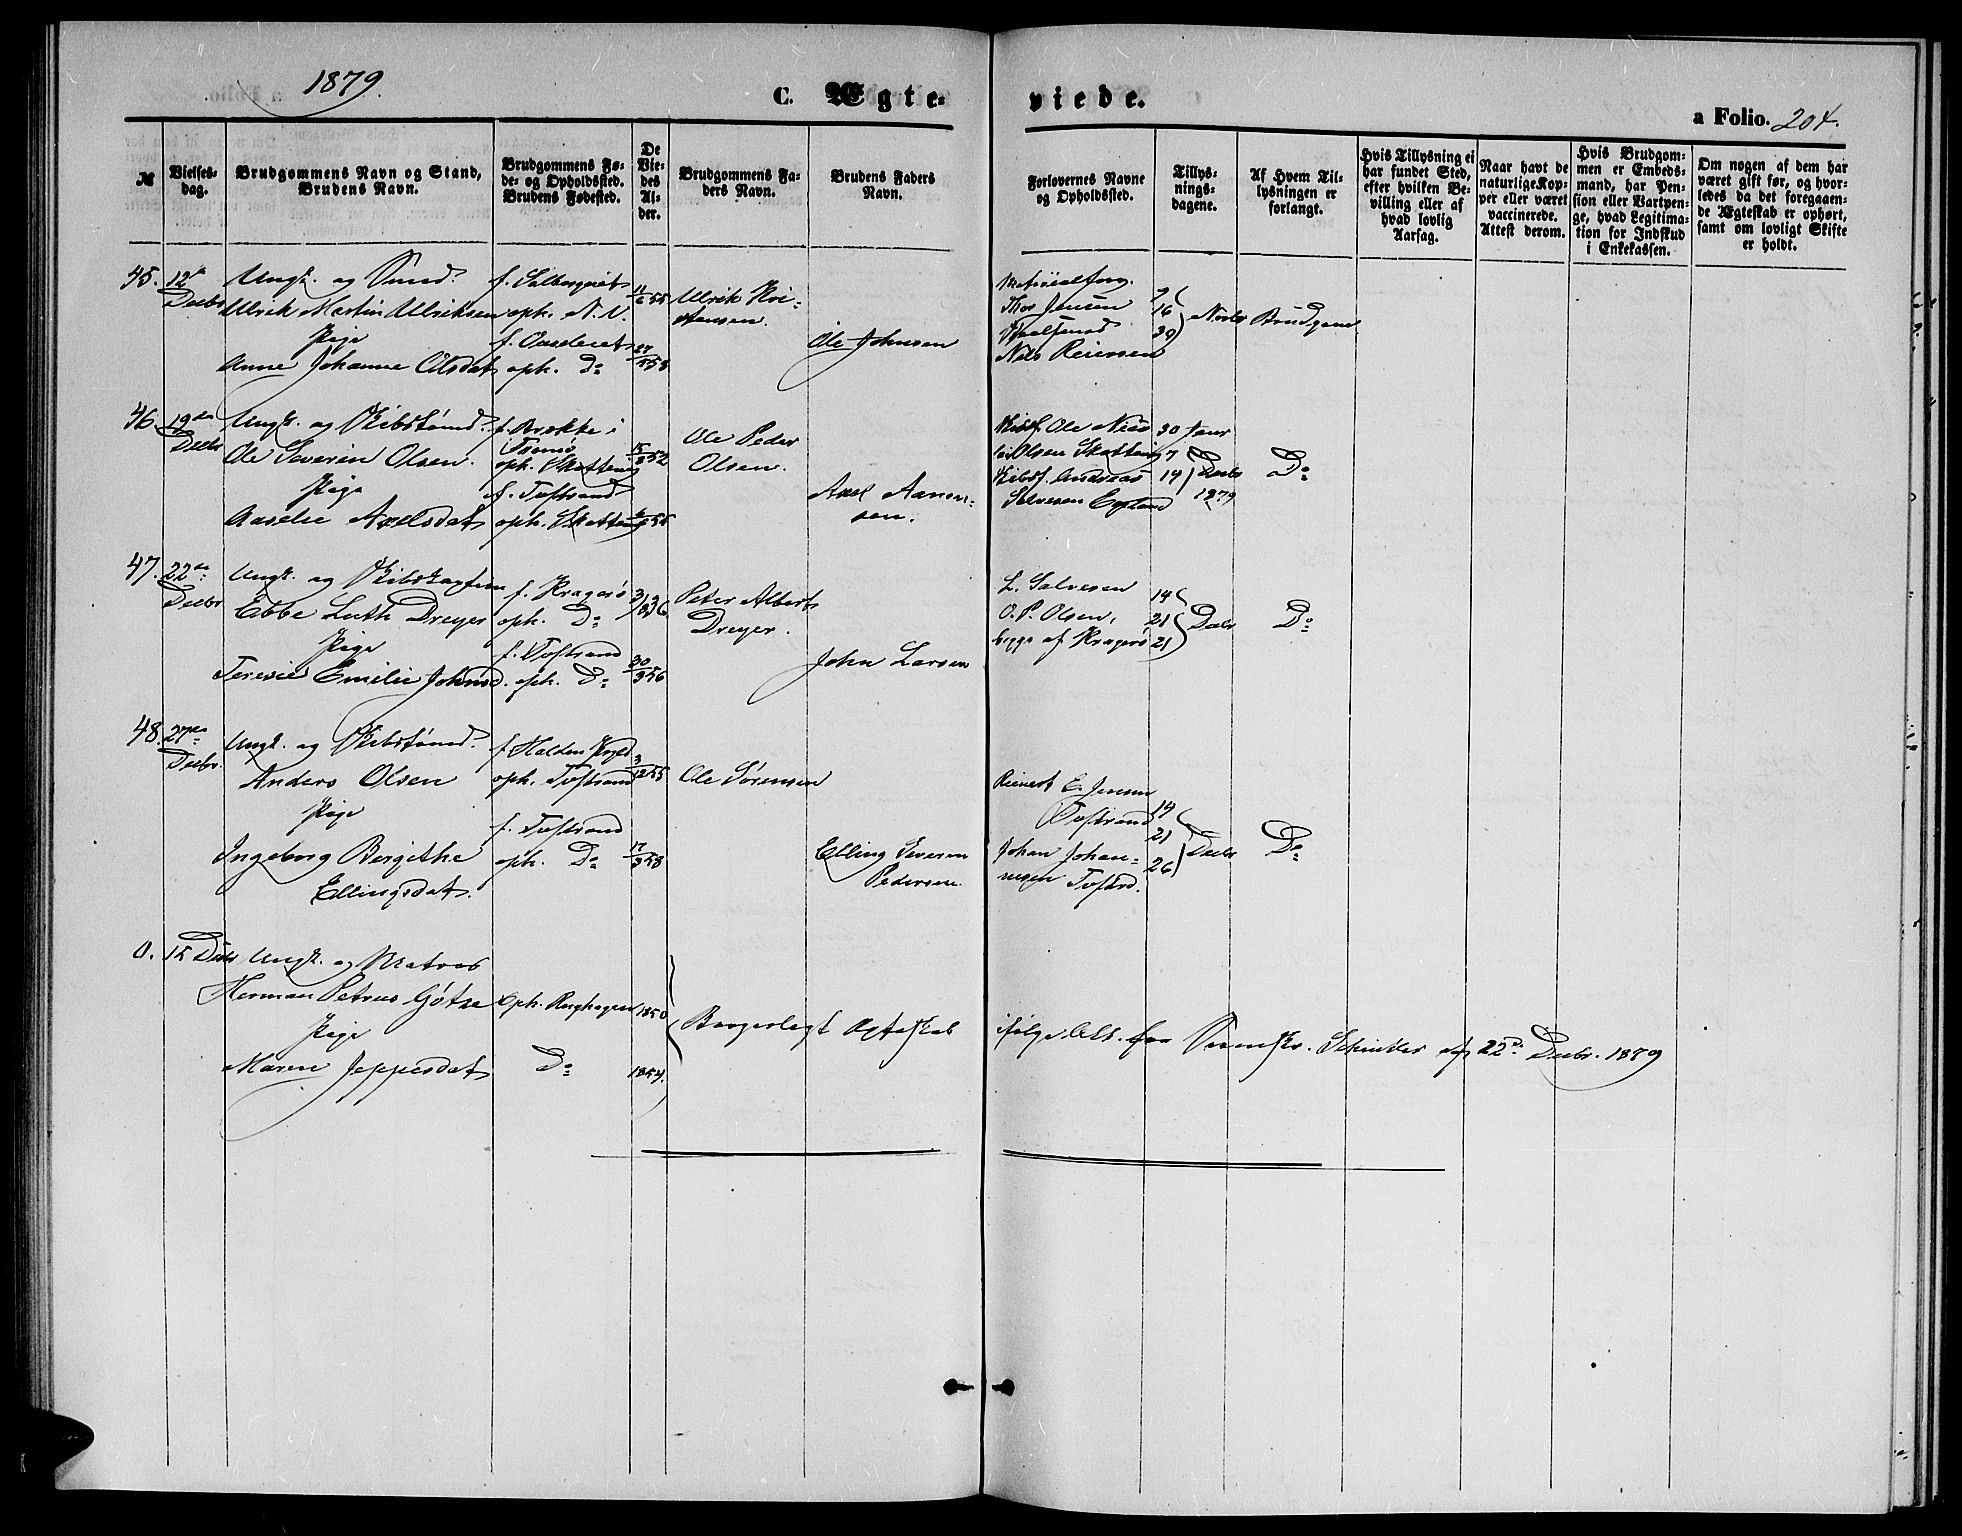 1879.
C. Ægte-
viede.
a Folio. 204.
№
Vielses-
dag.
Brudgommens Navn og Stand,
Brudens Navn.
Brudgommens Fø-
de- og Opholdssted.
Brudens Fødested.
De
Vie-
des
Al-
der.
Brudgommens Fa-
ders Navn.
Brudens Faders
Navn.
Forlovernes Navne
og Opholdssted.
Tillys-
nings-
dagene.
Af Hvem Til-
lysningen er
forlangt.
Hvis Tillysning ei
har fundet Sted,
efter hvilken Be-
villing eller af
hvad lovlig
Aarsag.
Naar havt de
naturlige Kop-
per eller været
vaccinerede.
Attest derom.
Hvis Brudgom-
men er Embeds-
mand, har Pen-
sion eller Vartpen-
ge, hvad Legitima-
tion for Indskud
i Enkekassen.
Om nogen af dem har
været gift før, og hvor-
ledes da det foregaaen-
de Ægteskab er ophørt,
samt om lovligt Skifte
er holdt.
45.
12te
Decbr
Ungk. og
Ulrik Martin Ulriksen
Pige
Anne Johanne Olsdat
oph. N. N.
oph. Do
Ulrik
Ole Johnsen
Thor Jensen
Nils Reiersen
16
30
Novbr
Brudgom
46.
19de
Decbr
Ungk. og Skibstømd.
Ole Severin Olsen.
Pige
Aaselie Axelsdat
f. Brække i
Tromø
oph. Skotteng
f. Tofstrand
oph. Skotteng
Ole Peder
Olsen.
Axel Aanon-
sen.
Ole
Olsen Skotteng
Skibsf. Andreas
Salvesen
30
7
14
Decbr
1879
Do
47.
22de
Decbr
Ungk. og Skibskaptein
Ebbe Luth Dreyer
Pige
Teresie Emilie Johnsd.
f. Kragerø
oph. Do
f. Tofstrand
oph. Do
30/3 56
Peter Albert
Dreyer.
John Larsen
L. Salvesen
O. P. Olsen,
begge af Kragerø
14
21
21
Decbr
Do
48.
27de
Decbr.
Ungk. og Skibstømd.
Anders Olsen
Pige
Ingeborg Bergithe
Ellingsdat.
f. Halden
oph. Tofstrand
f. Tofstrand
oph. Do
3/12 55
17/3 58
Ole Sørensen
Elling Severin
Pedersen.
Reinert E. Jensen
Tofstrand
Johan Johan-
nesen Tofstrd.
14
21
26
Decbr
Do
0.
15 Decbr
Ungk. og Matros
Herman Petrus Götze
Pige
Maren Jeppesdat
Oph.
Do
1850
1854.
Borgerligt Ægteskab
ifølge Att. fra
af 22de Decbr. 1879